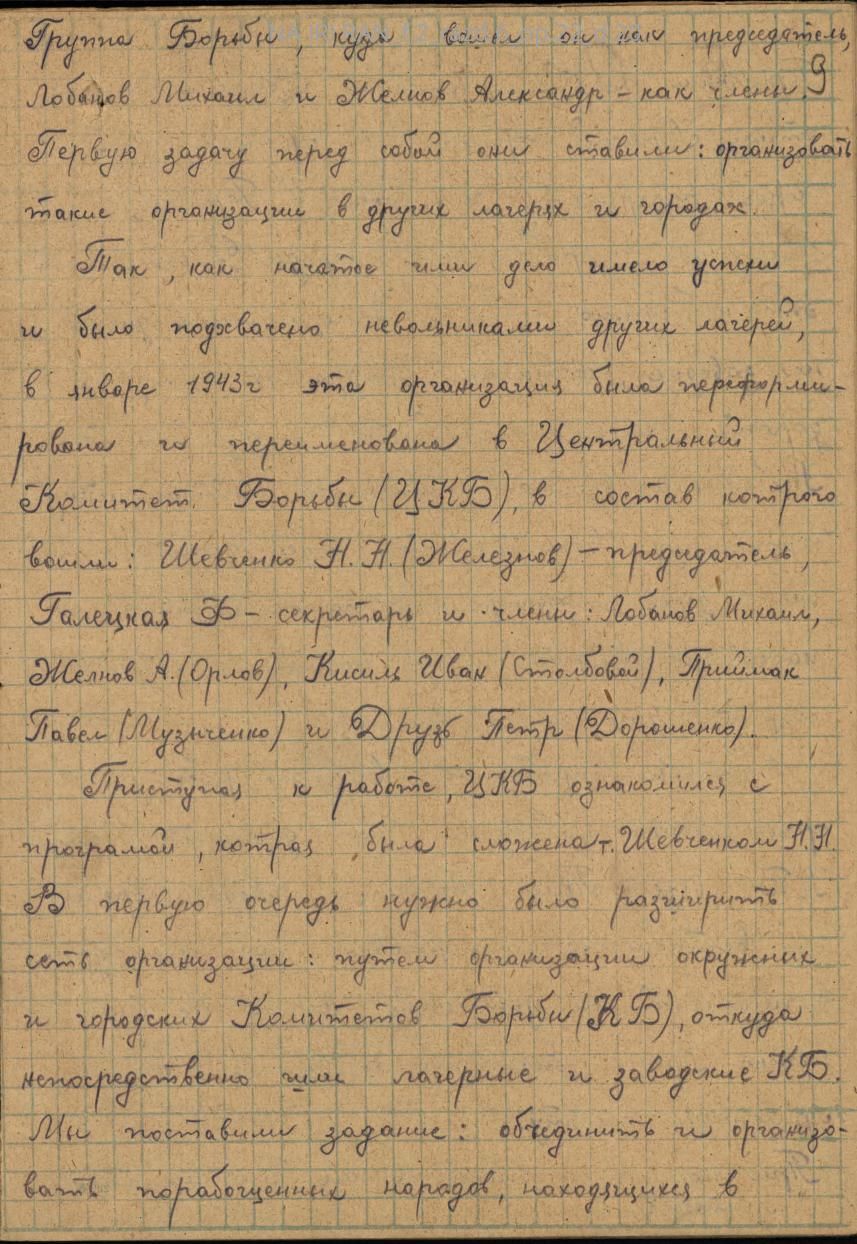 Группа Борьбы, куда вошли он как председатель,
9
Лобанов Михаил и Желнов Александр – как члены.
Первую задачу перед собой они ставили: организовать
такие организации в других лагерях и городах.
Так, как начатое ими дело имело успехи
и было подхвачено невольниками других лагерей,
в январе 1943г эта организация была переформи-
рована и переименована в Центральный
Комитет Борьбы (ЦКБ), в состав которго
вошли: Шевченко Н.Н. (Железнов) – председатель,
Галецкая Ф – секретарь и члены: Лобанов Михаил,
Желнов А. (Орлов), Кисиль Иван (Столбовой), Приймак
Павел (Музыченко) и Друзь Петр (Дорошенко).
Приступая к работе, ЦКБ ознакомился с
програмой, котрая была сложена т. Шевченком Н.Н.
В первую очередь нужно было разширить
сеть организации: путем организации окружных
и городских Комитетов Борьбы (КБ), откуда
непосредственно шли лагерные и заводские КБ.
Мы поставили задание: объединить и организо-
вать порабощенных народов, находящихся в